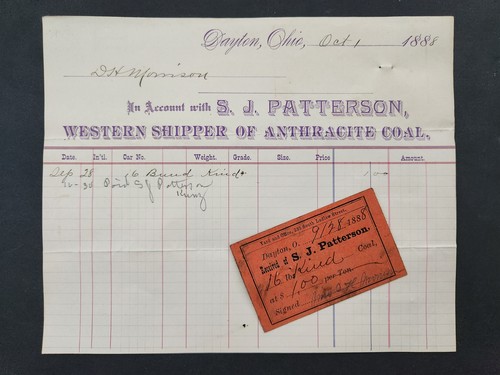 Dayton, Ohio, Oct 1 1888
D H Morrison
In Account with S. J. PATTERSON,
WESTERN SHIPPER OF ANTHRACITE COAL.
Date. In't'l. Car No. Weight. Grade. Size. Price Amount.
Sep 28 16 Bund Kind 1 00
Paid S J Patterson
Yard and Office, South Ludlow Street.
Dayton, O. 9/28 1888
of S. J. Patterson.
16 Kind Coal,
at $ 1.00 per Ton.
Signed